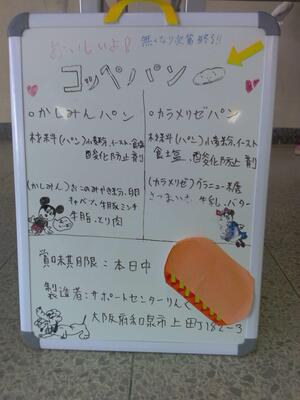 おいしいよ!
無くなり次第終了!!
コッペパン
○かしみんパン
材料(パン)小麦粉、イースト、食塩
酸変化防止剤
(かしみん)おこのみやき粉、卵
キャベツ、牛豚ミンチ
牛脂、とり肉
○カラメリゼパン
材料(パン)小麦粉、イースト
食塩、酸変化防止剤
(カラメリゼ)グラニュー糖
さつまいも、牛乳、バター
賞味期限:本日中
製造者:サポートセンターりんく
大阪府和泉市上田丁182-3